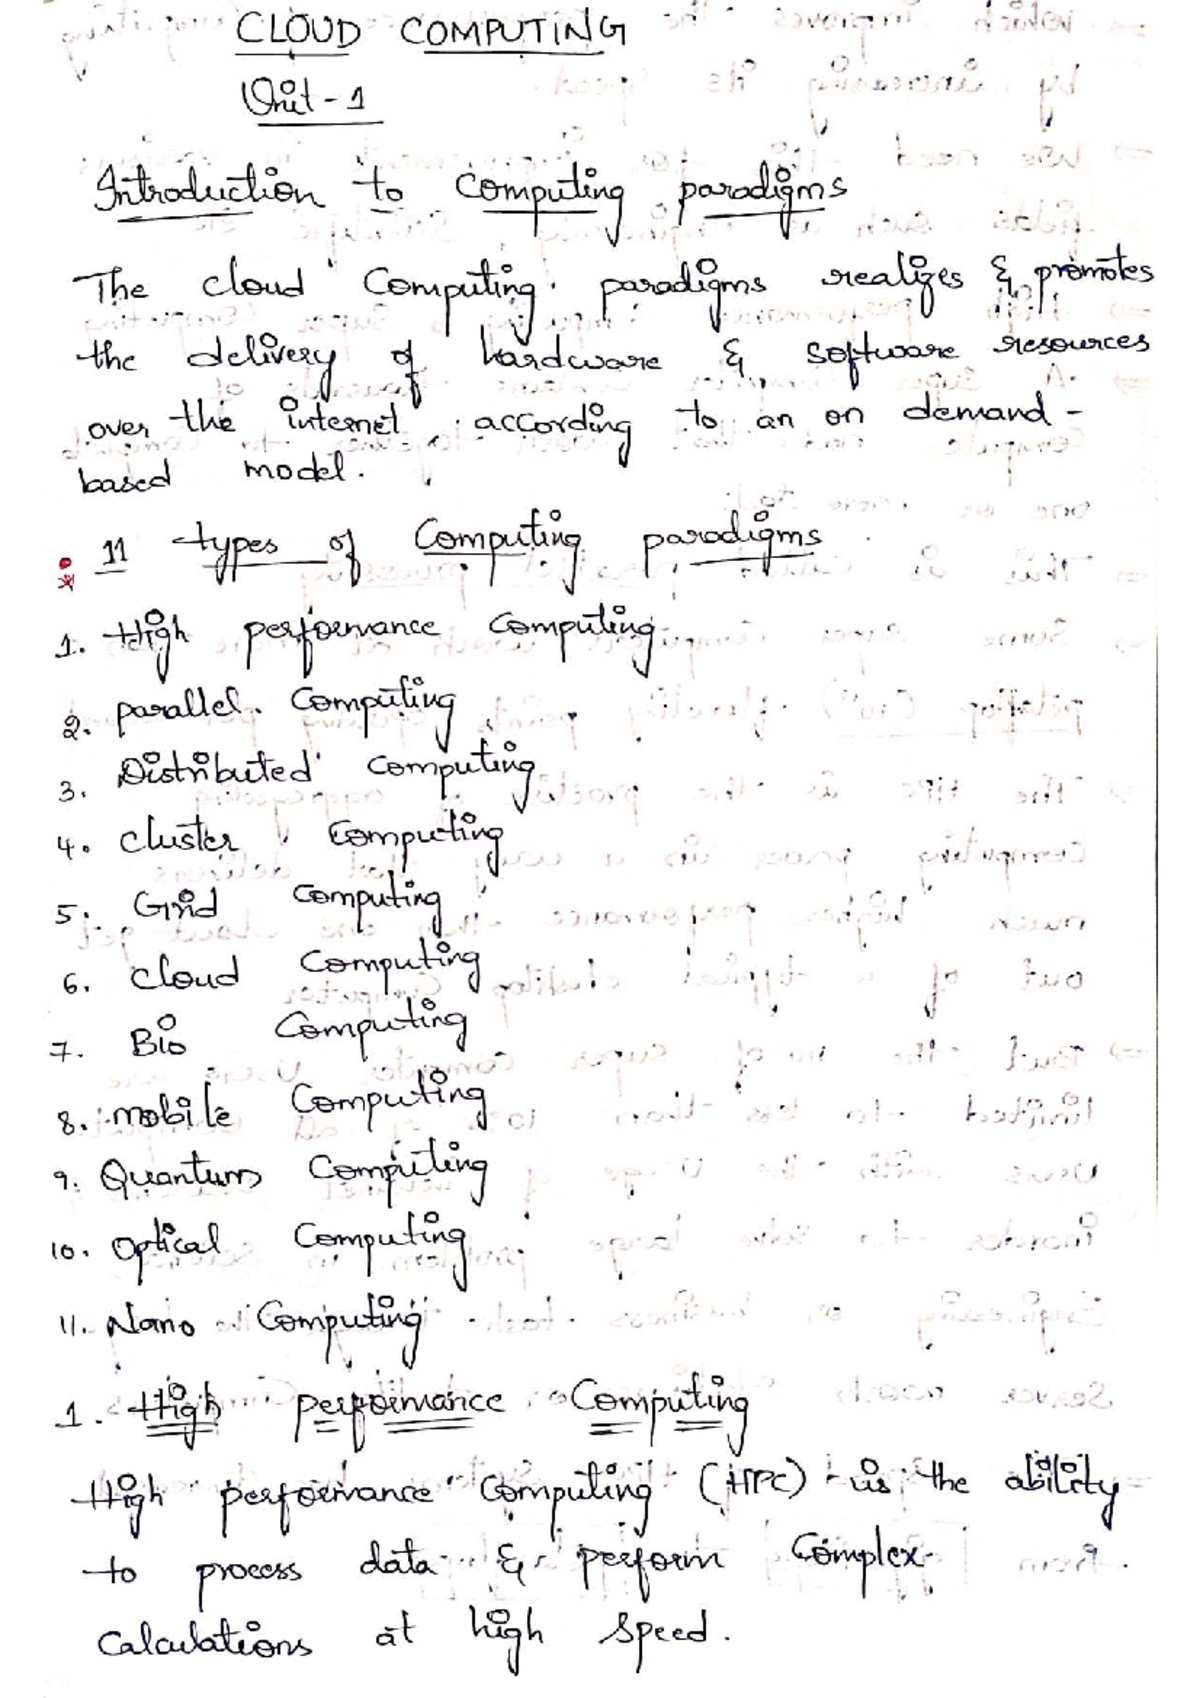 CLOUD COMPUTING
Unit-1
Introduction to Computing paradigms
The cloud Computing paradigms realizes & promotes
the delivery of hardware & software resources
over the internet according to an on demand-
based model.
11 types of Computing paradigms
1. High performance Computing
2. parallel Computing
3. Distributed Computing
4. cluster Computing
5. Grid Computing
6. cloud Computing
7. Bio Computing
8. mobile Computing
9. Quantum Computing
10. Optical Computing
11. Nano Computing
1. High performance Computing
High performance Computing (HPC) is the ability
to process data & perform Complex
Calculations at high speed.